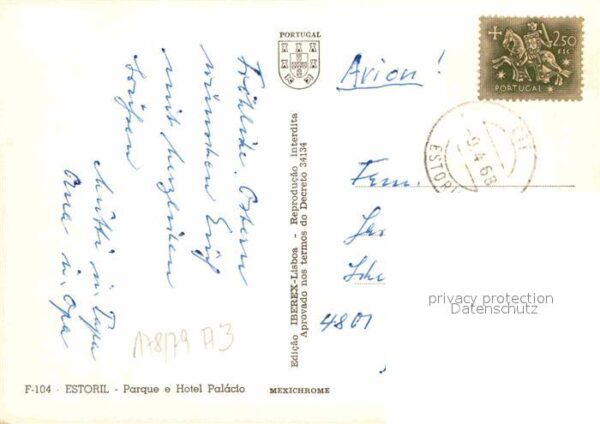 PORTUGAL
Avion!
2$50
ESC.
PORTUGAL
Fröhliche Ostern
wünschen Euch
mit herzlichen
Grüßen
Mutti u. Papa
Oma u. Opa
ESTORIL
-9.4.68
Fam.
4801
privacy protection
Datenschutz
178/79 A3
Edição IBEREX-Lisboa - Reprodução Interdita
Aprovado nos termos do Decreto 34134
F-104 - ESTORIL - Parque e Hotel Palácio
MEXICHROME